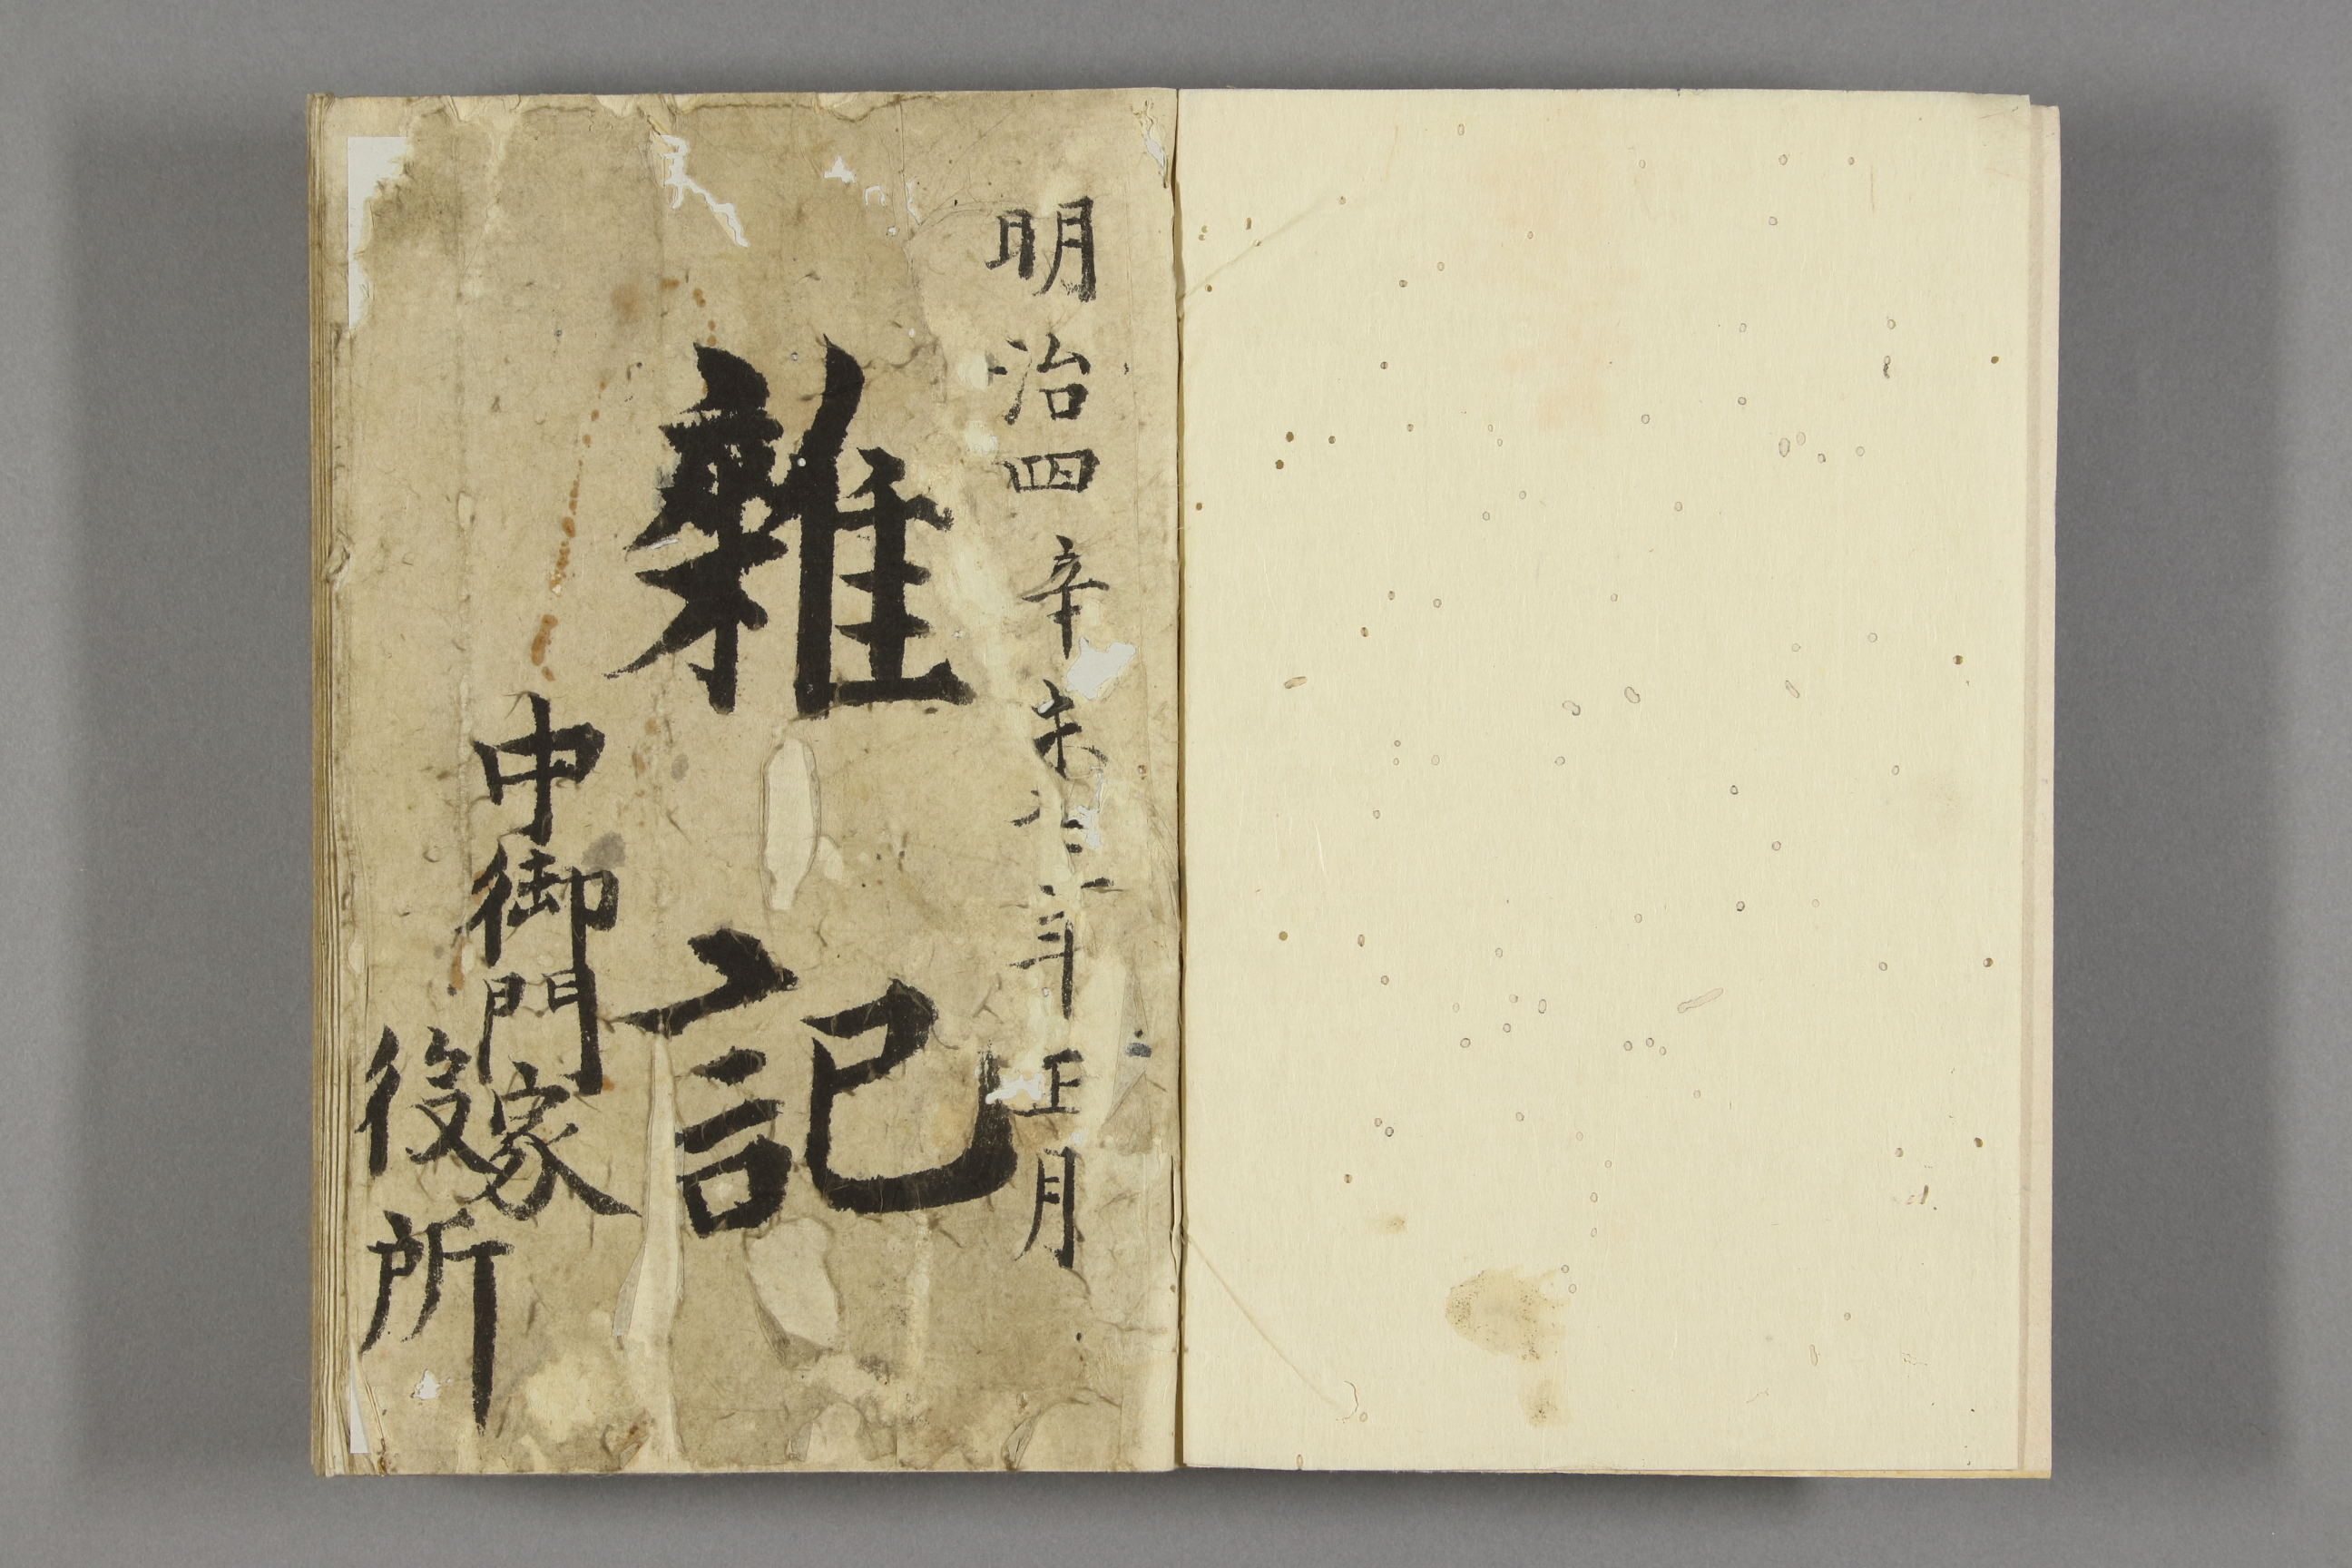 明治四辛未年正月
雜記
中御門家
役所